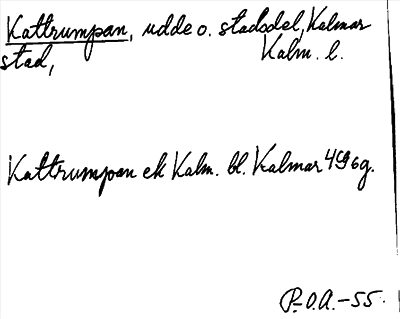 Kattrumpan, udde o. stadsdel, Kalmar
stad, Kalm. l.
Kattrumpan ek Kalm. bl. Kalmar 4G6g.
P.O.A.-55.